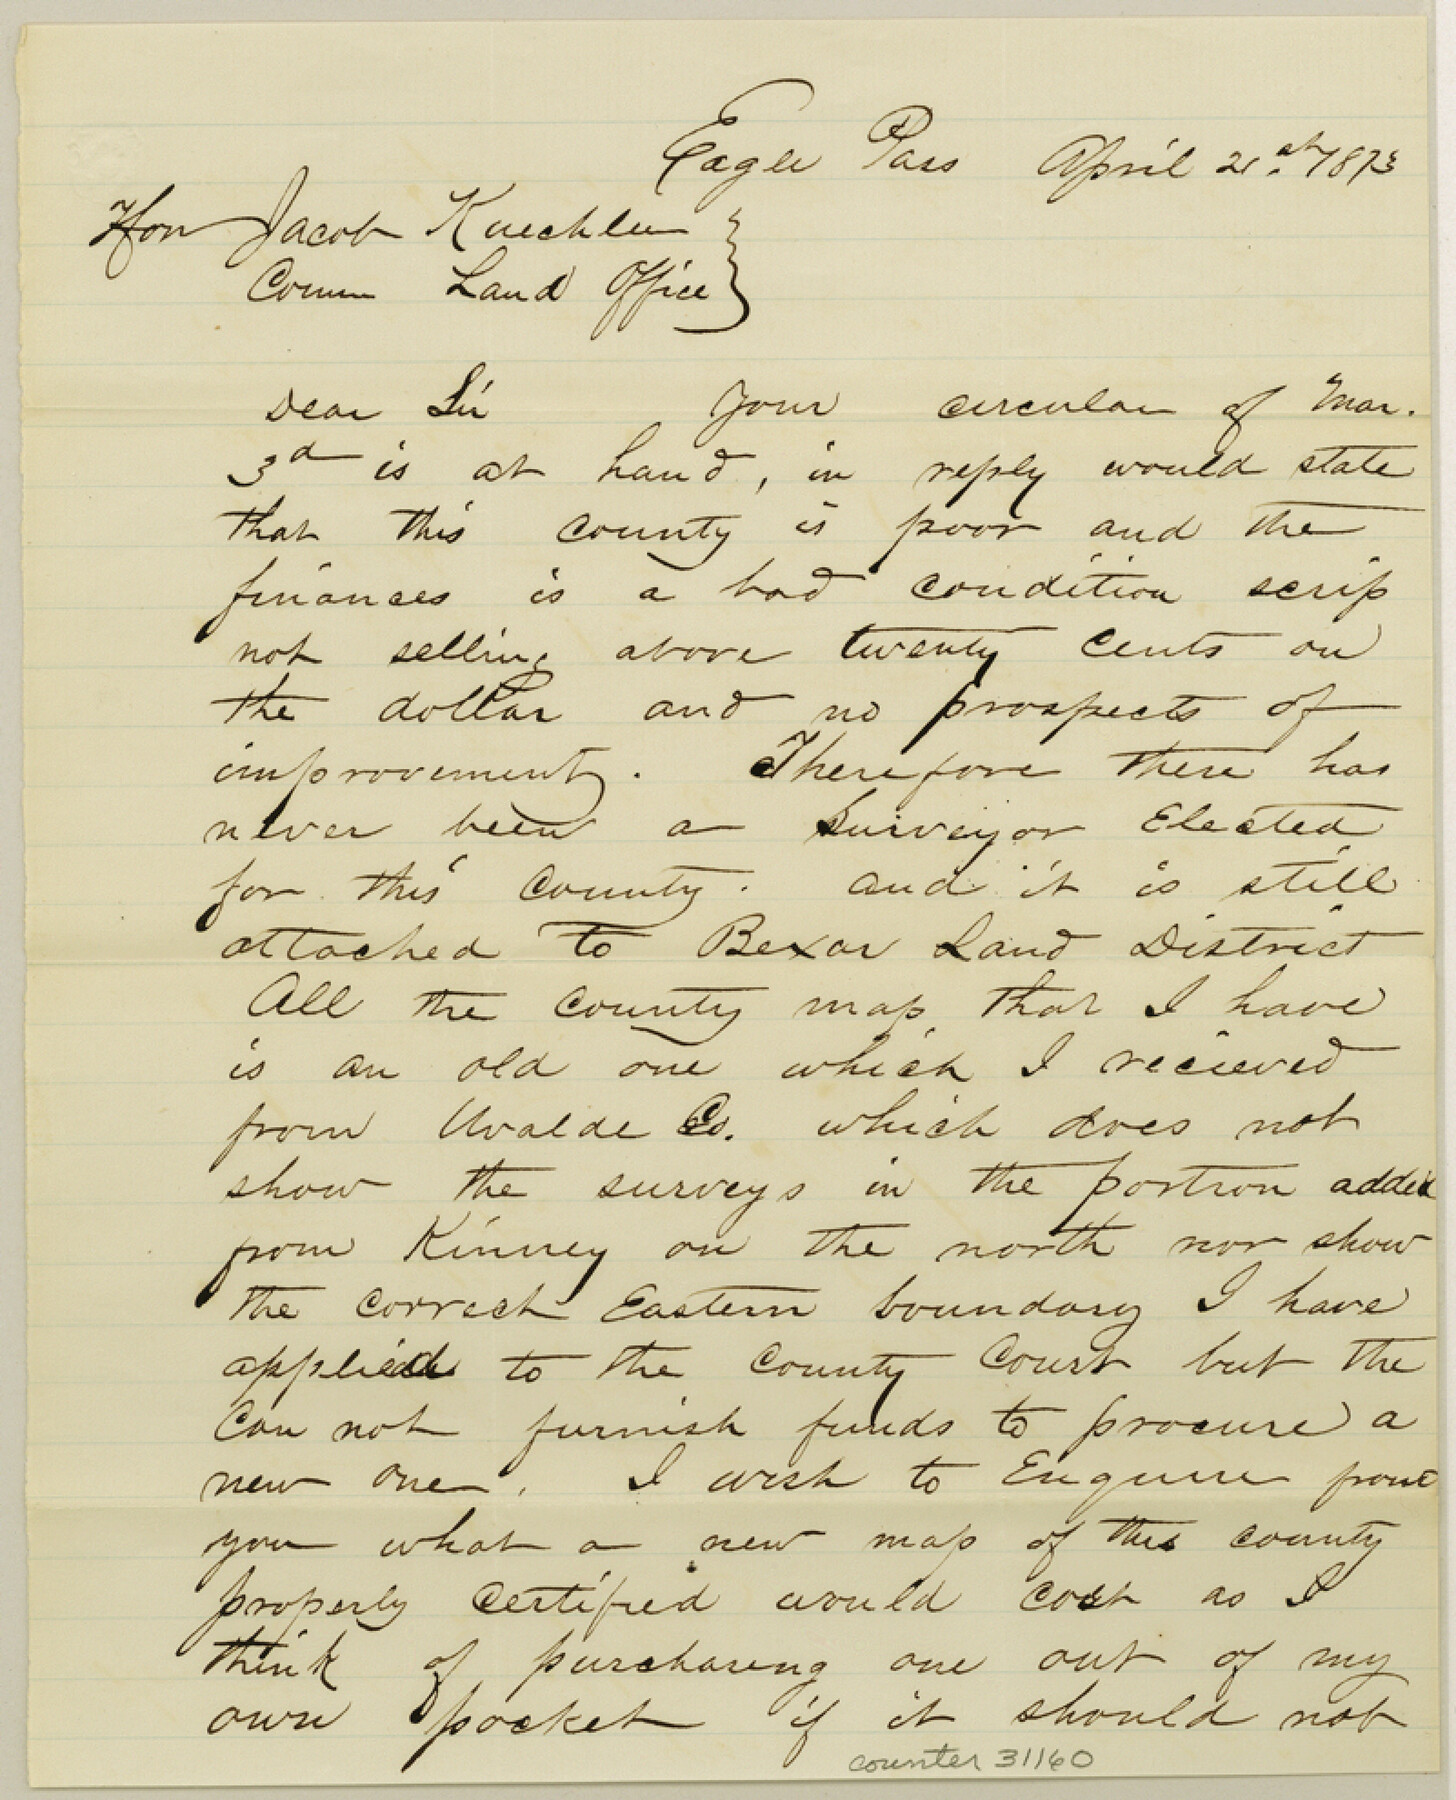 Eagle Pass April 21st 1873
Hon Jacob Kuechler
Comm Land Office
Dear Sir Your circular of Mar.
3d is at hand, in reply would state
that this county is poor and the
finances is a bad condition scrip
not selling above twenty cents on
the dollar and no prospects of
improvement. Therefore there has
never been a Surveyor Elected
for this County. and it is still
attached to Bexar Land District
All the County map that I have
is an old one which I recieved
from Uvalde Co. which does not
show the surveys in the portion added
from Kinney on the north nor show
the correct Eastern boundary I have
applied to the County Court but the
Can not furnish funds to procure a
new one. I wish to Enquire from
you what a new map of this county
properly certified would cost as I
think of purchasing one out of my
own pocket if it should not
counter 31160